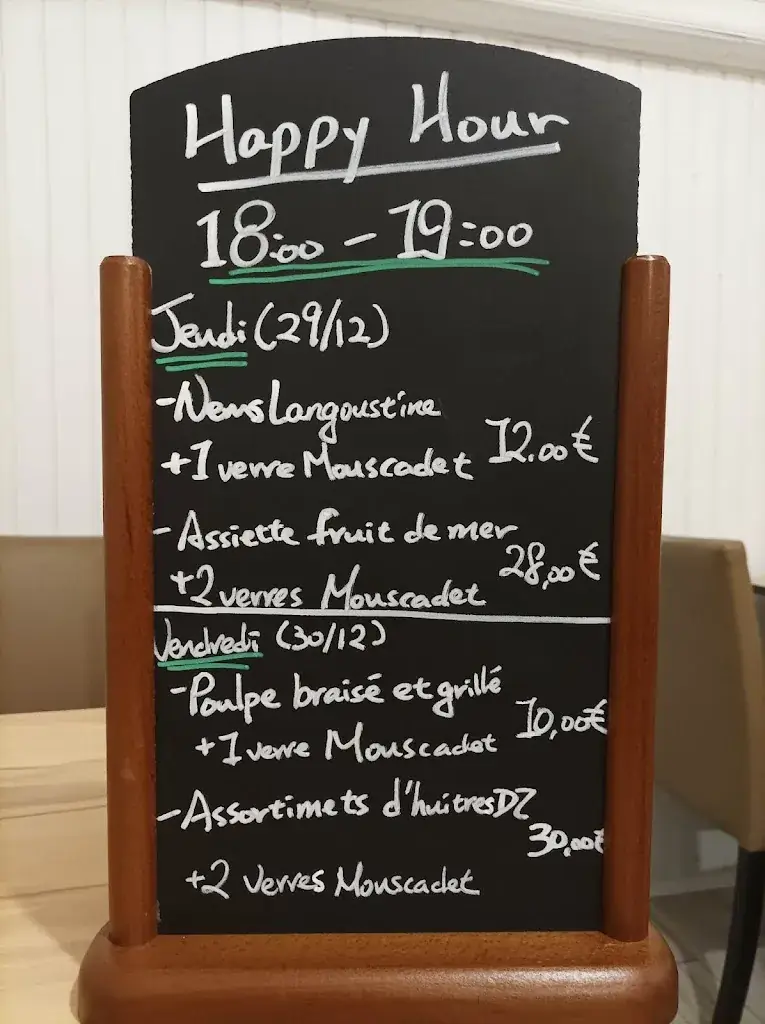 Happy Hour
18:00 - 19:00
Jeudi (29/12)
- Nems Langoustine
+ 1 verre Mouscadet 12.00€
- Assiette fruit de mer
+ 2 verres Mouscadet 28,00€
Vendredi (30/12)
- Poulpe braisé et grillé
+ 1 verre Mouscadet 10,00€
- Assortimets d'huitres DZ
30,00€
+ 2 verres Mouscadet